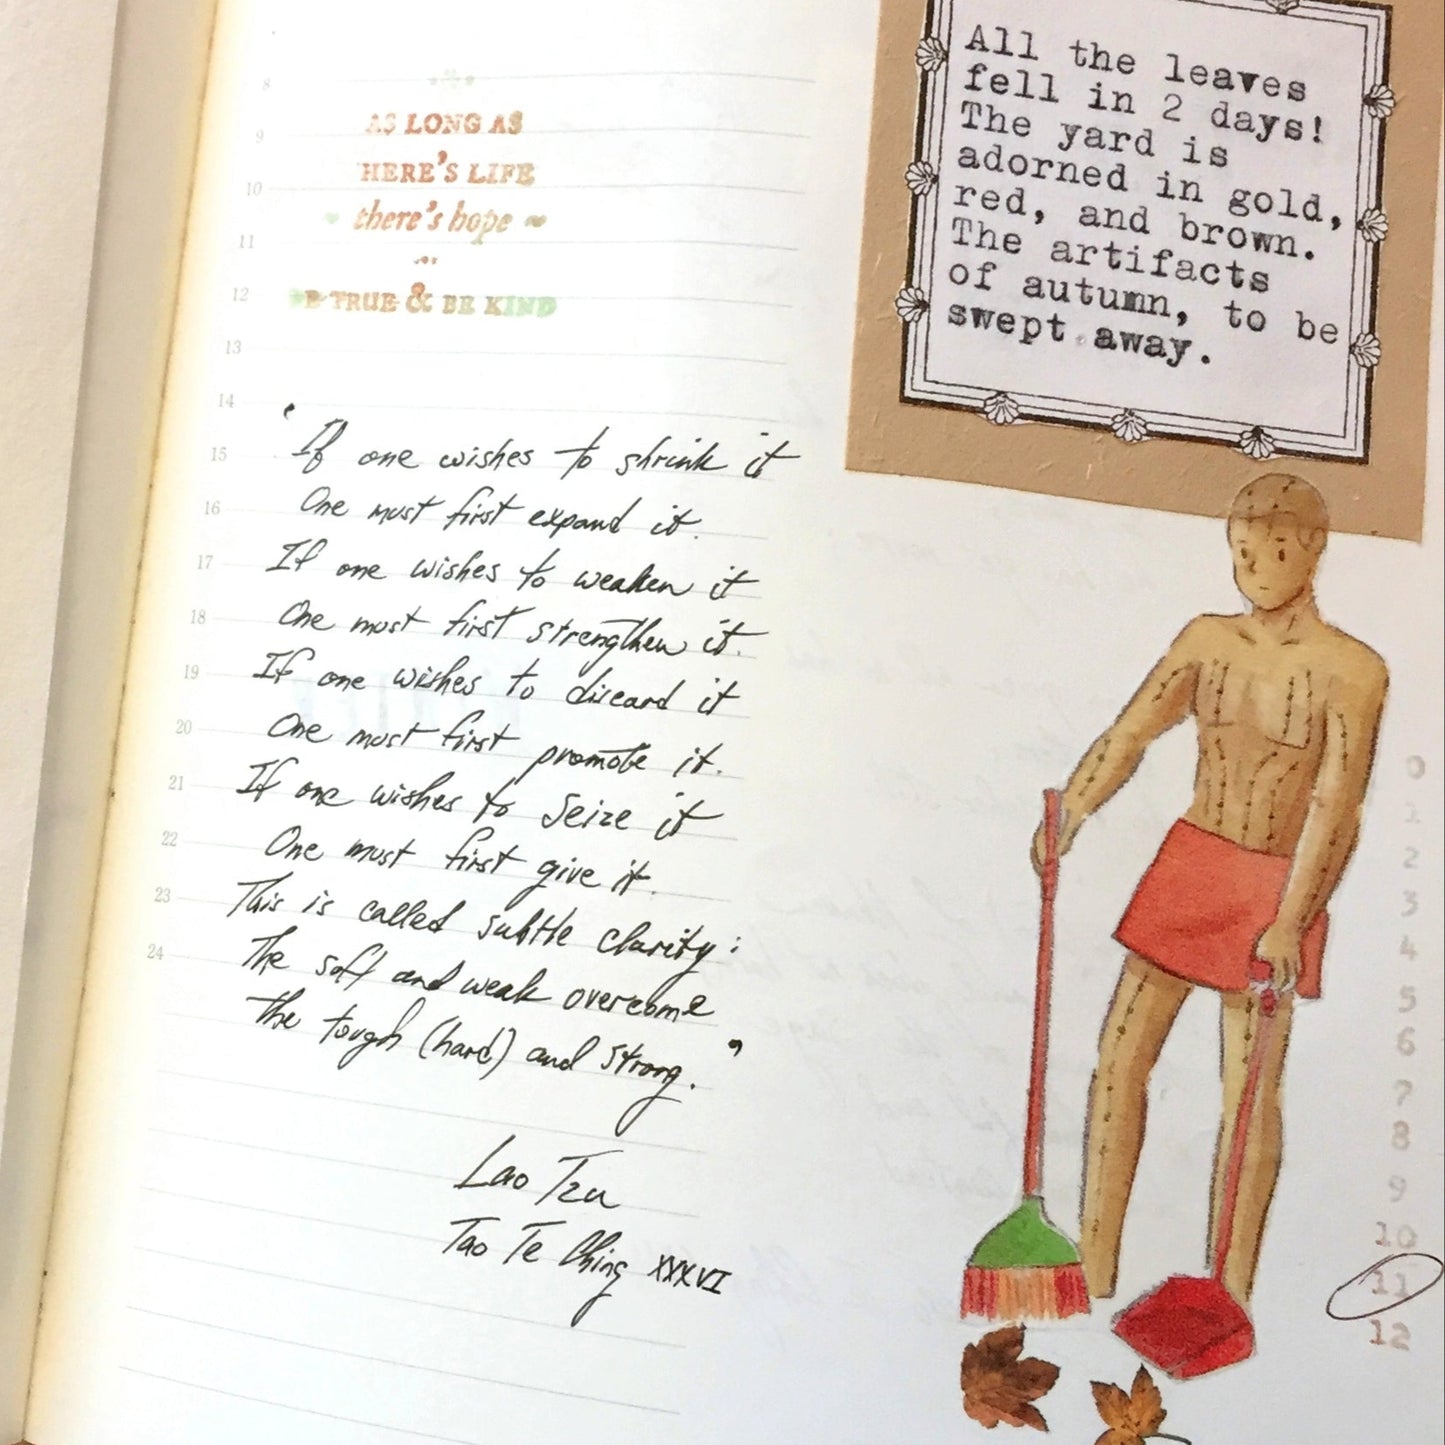 AS LONG AS
HERE'S LIFE
there's hope
E TRUE & BE KIND
8
9
10
11
12
13
14
15
16
17
18
19
20
21
22
23
24
'If one wishes to shrink it
One must first expand it.
If one wishes to weaken it
One must first strengthen it.
If one wishes to discard it
One must first promote it.
If one wishes to seize it
One must first give it.
This is called subtle clarity:
The soft and weak overcome
the tough (hard) and strong.'
Lao Tzu
Tao Te Ching XXXVI
All the leaves
fell in 2 days!
The yard is
adorned in gold,
red, and brown.
The artifacts
of autumn, to be
swept away.
0
1
2
3
4
5
6
7
8
9
10
11
12